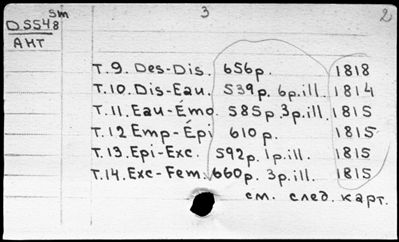 sm 3 2
D5548
АНТ
т.9. Des-Dis. 656p. 1818
т.10. Dis-Eau. 539p. 6p.ill. 1814
т.11. Eau-Émo. 585p. 3p.ill. 1815
т.12 Émp-Épi 610p. 1815
т.13. Epi-Exc. 592p. 1p.ill. 1815
т.14. Exc-Fem. 660p. 3p.ill. 1815
см. след. карт.